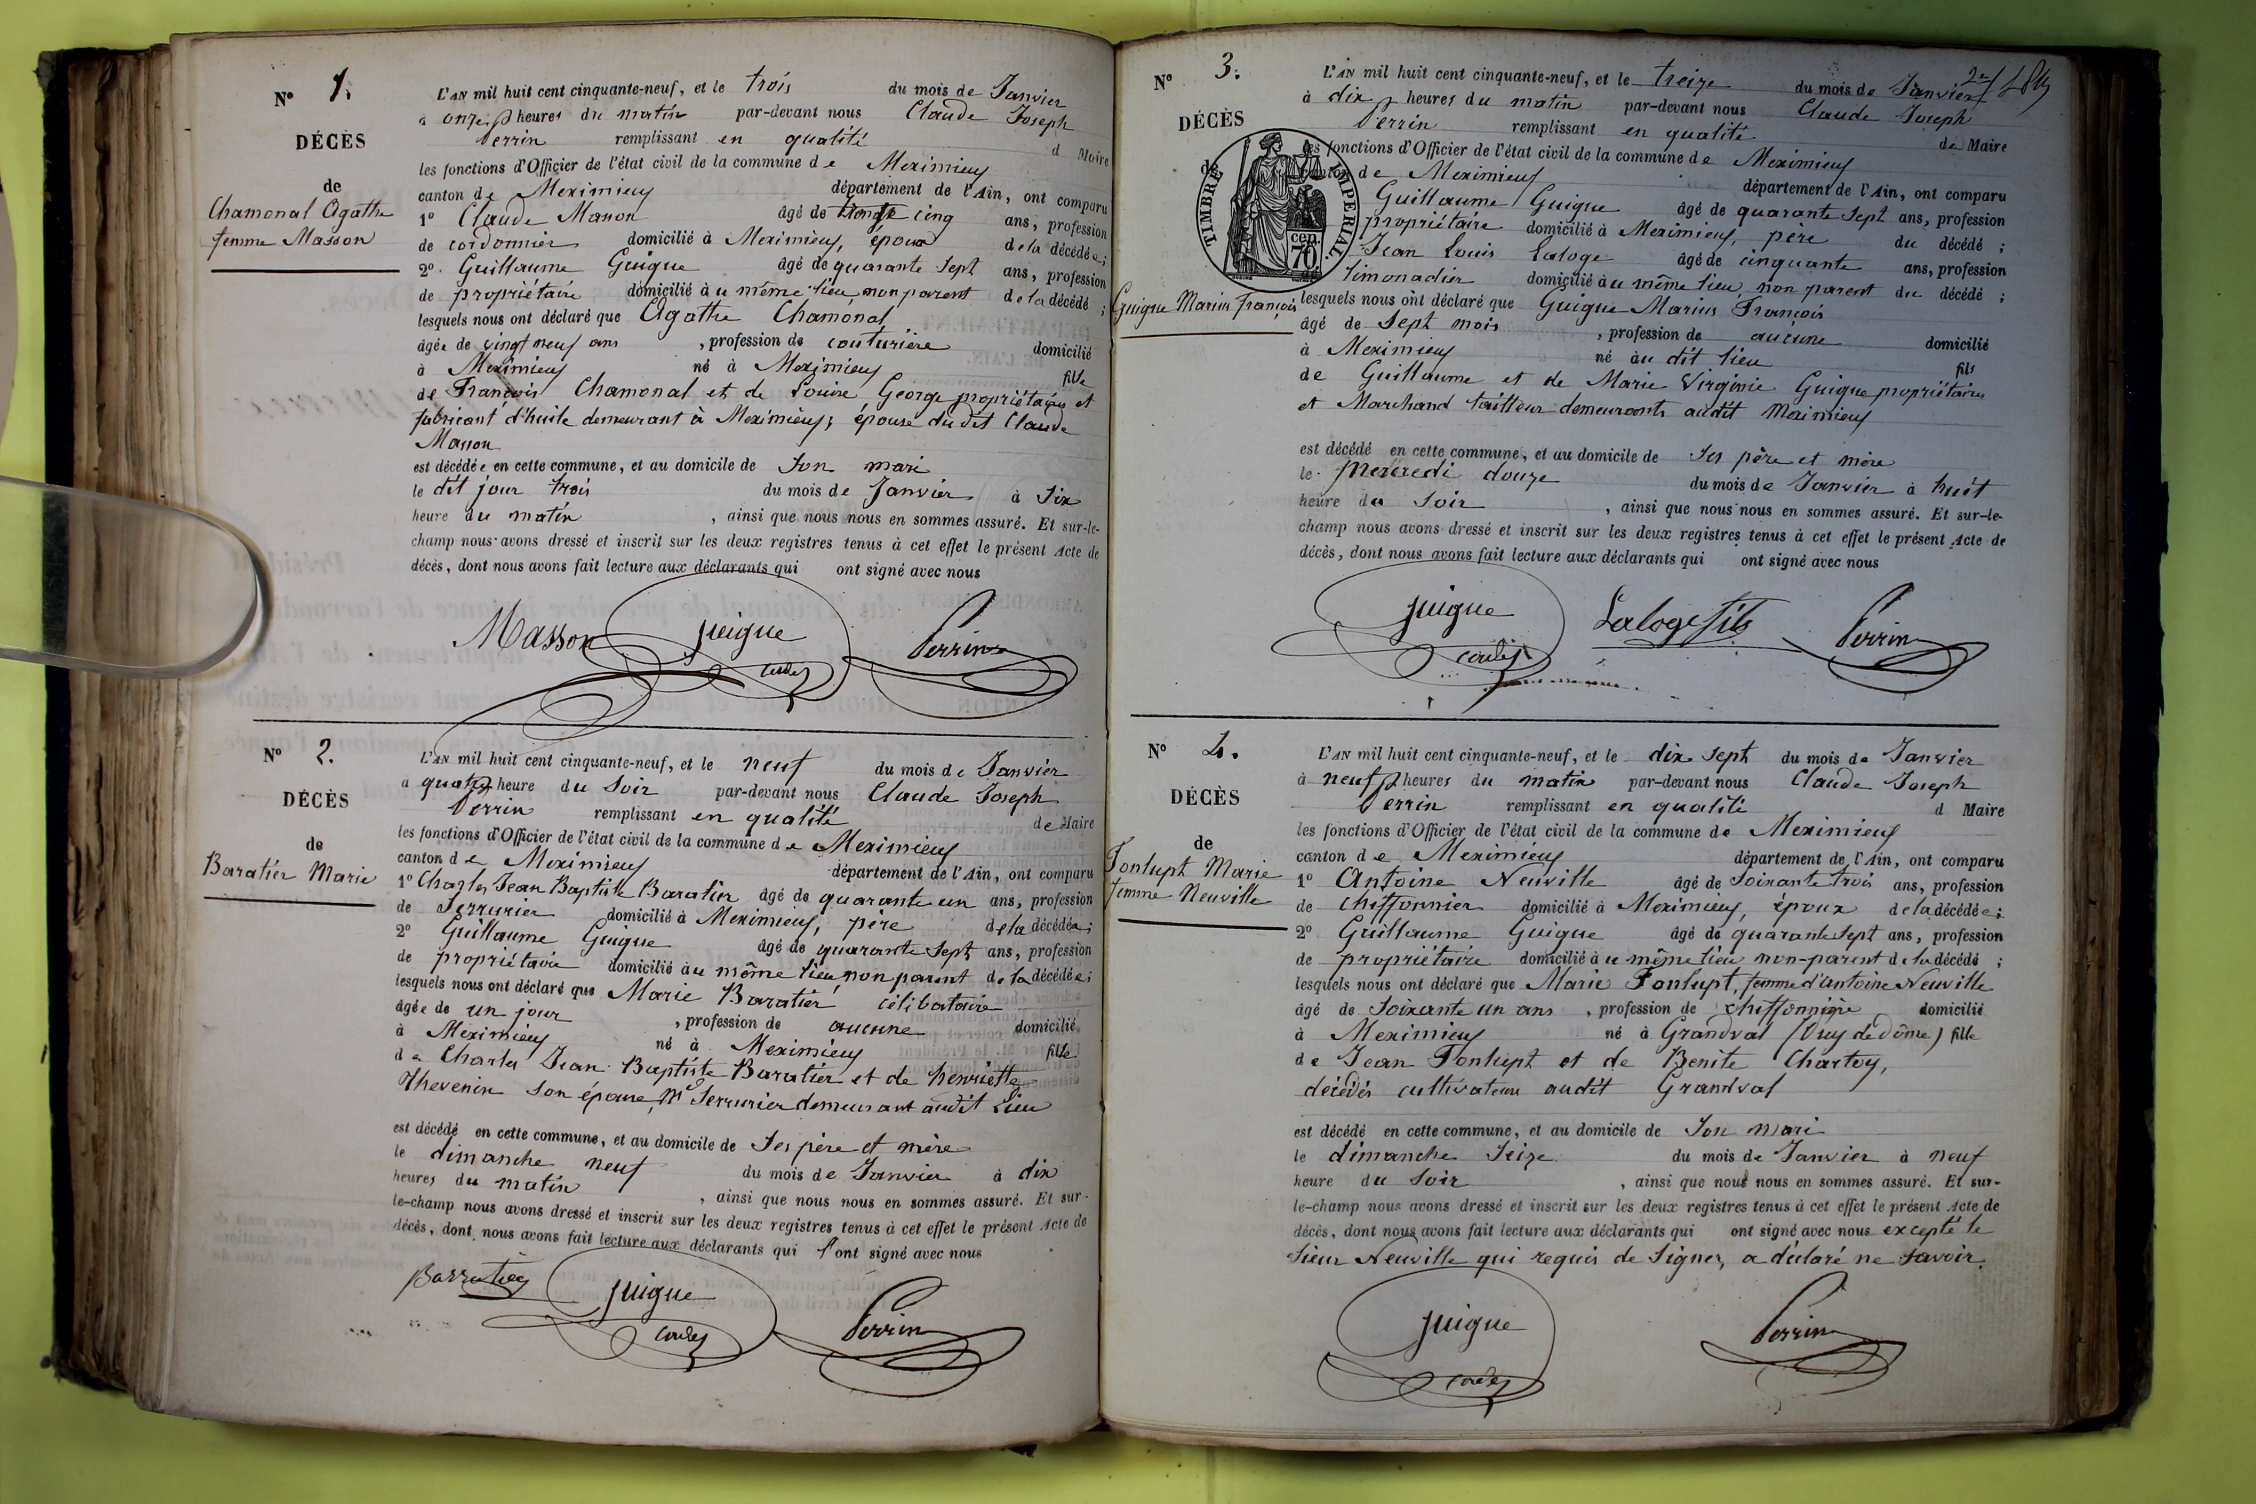 N° 1.
DÉCÈS
de
Chamonal Agathe
femme Masson
L'AN mil huit cent cinquante-neuf, et le trois du mois de Janvier
à onze heures du matin par-devant nous Claude Joseph
Perrin remplissant en qualité d Maire
les fonctions d'Officier de l'état civil de la commune de Meximieux
canton de Meximieux département de l'Ain, ont comparu
1° Claude Masson âgé de trente cinq ans, profession
de cordonnier domicilié à Meximieux, époux de la décédée;
2° Guillaume Guigue âgé de quarante sept ans, profession
de propriétaire domicilié au même lieu, non parent de la décédé ;
lesquels nous ont déclaré que Agathe Chamonal
âgée de vingt neuf ans , profession de couturière domicilié
à Meximieux né à Meximieux fille
de François Chamonal et de Louise George propriétaires et
fabricant d'huile demeurant à Meximieux; épouse du dit Claude
Masson
est décédée en cette commune, et au domicile de son mari
le dit jour trois du mois de Janvier à six
heure du matin , ainsi que nous nous en sommes assuré. Et sur-le-
champ nous avons dressé et inscrit sur les deux registres tenus à cet effet le présent Acte de
décès, dont nous avons fait lecture aux déclarants qui ont signé avec nous
Masson guigue Perrin
N° 2.
DÉCÈS
de
Baratier Marie
L'AN mil huit cent cinquante-neuf, et le neuf du mois de Janvier
à quatre heure du soir par-devant nous Claude Joseph
Perrin remplissant en qualité de Maire
les fonctions d'Officier de l'état civil de la commune de Meximieux
canton de Meximieux département de l'Ain, ont comparu
1° Charles Jean Baptiste Baratier âgé de quarante un ans, profession
de Serrurier domicilié à Meximieux, père de la décédée;
2° Guillaume Guigue âgé de quarante sept ans, profession
de propriétaire domicilié au même lieu, non parent de la décédée;
lesquels nous ont déclaré que Marie Baratier célibataire
âgée de un jour , profession de aucune domicilié
à Meximieux né à Meximieux fille
de Charles Jean Baptiste Baratier et de henriette
Thevenin son épouse, Me Serrurier demeurant audit lieu
est décédé en cette commune, et au domicile de Ses père et mère
le dimanche neuf du mois de Janvier à dix
heures du matin , ainsi que nous nous en sommes assuré. Et sur-
le-champ nous avons dressé et inscrit sur les deux registres tenus à cet effet le présent Acte de
décès, dont nous avons fait lecture aux déclarants qui l'ont signé avec nous
Barratier guigue Perrin
N° 3.
DÉCÈS
de
TIMBRE IMPERIAL.
70 cen.
Guigue Marius françois
L'AN mil huit cent cinquante-neuf, et le treize du mois de Janvier
à dix heures du matin par-devant nous Claude Joseph
Perrin remplissant en qualité de Maire
les fonctions d'Officier de l'état civil de la commune de Meximieux
canton de Meximieux département de l'Ain, ont comparu
Guillaume Guigue âgé de quarante sept ans, profession
propriétaire domicilié à Meximieux, père du décédé ;
Jean Louis Laloge âgé de cinquante ans, profession
limonadier domicilié au même lieu, non parent du décédé ;
lesquels nous ont déclaré que Guigue Marius François
âgé de sept mois , profession de aucune domicilié
à Meximieux né au dit lieu fils
de Guillaume et de Marie Virginie Guigue propriétaires
et Marchand tailleur demeurants audit Meximieux
est décédé en cette commune, et au domicile de ses père et mère
le mercredi douze du mois de Janvier à huit
heure du soir , ainsi que nous nous en sommes assuré. Et sur-le-
champ nous avons dressé et inscrit sur les deux registres tenus à cet effet le présent Acte de
décès, dont nous avons fait lecture aux déclarants qui ont signé avec nous
guigue Laloge fils Perrin
N° 4.
DÉCÈS
de
Fonlupt Marie
femme Neuville
L'AN mil huit cent cinquante-neuf, et le dix sept du mois de Janvier
à neuf heures du matin par-devant nous Claude Joseph
Perrin remplissant en qualité d Maire
les fonctions d'Officier de l'état civil de la commune de Meximieux
canton de Meximieux département de l'Ain, ont comparu
1° Antoine Neuville âgé de soixante trois ans, profession
de chiffonnier domicilié à Meximieux, époux de la décédée;
2° Guillaume Guigue âgé de quarante sept ans, profession
de propriétaire domicilié au même lieu non-parent de la décédé ;
lesquels nous ont déclaré que Marie Fonlupt, femme d'Antoine Neuville
âgé de soixante un ans , profession de chiffonnière domicilié
à Meximieux né à Grandval (Puy de Dôme) fille
de Jean Fonlupt et de Benite Chartoy,
décédés cultivateurs audit Grandval
est décédé en cette commune, et au domicile de son mari
le dimanche seize du mois de Janvier à neuf
heure du soir , ainsi que nous nous en sommes assuré. Et sur-
le-champ nous avons dressé et inscrit sur les deux registres tenus à cet effet le présent Acte de
décès, dont nous avons fait lecture aux déclarants qui ont signé avec nous excepté le
sieur Neuville qui requis de signer, a déclaré ne savoir.
guigue Perrin